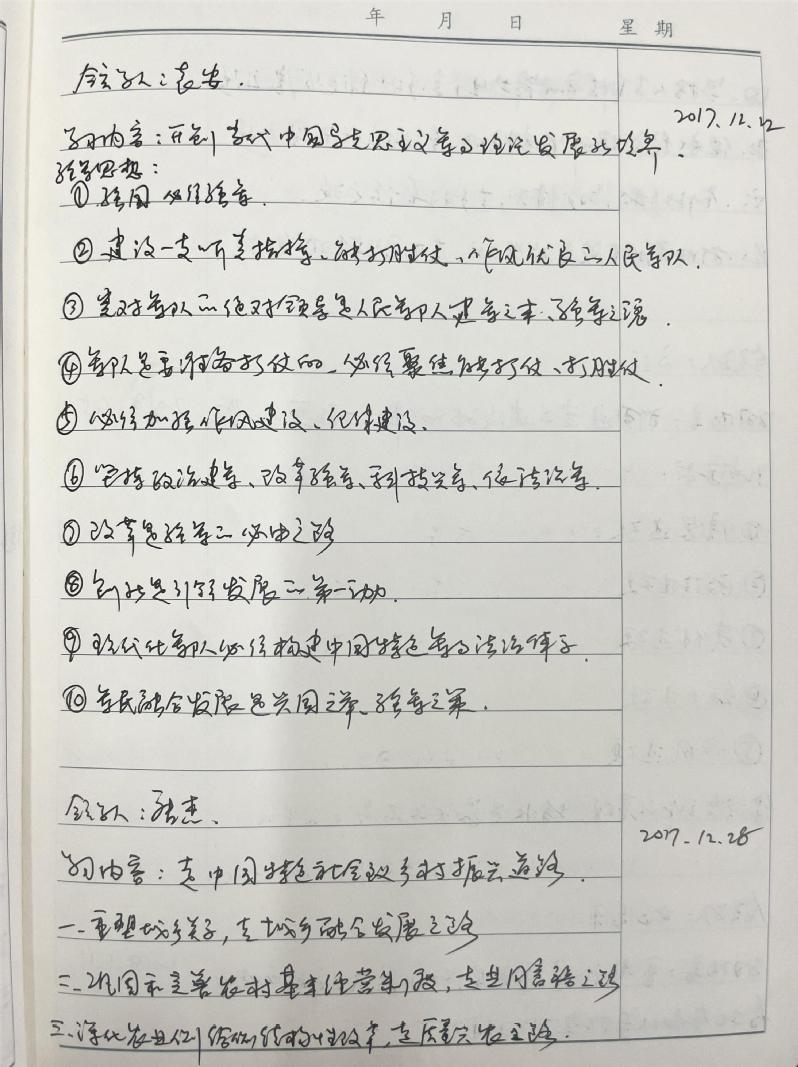 年 月 日 星期
领学人：袁安.
2017.12.22
学习内容：开创当代中国马克思主义军事理论发展新境界.
强军思想：
① 强国必须强军.
② 建设一支听党指挥、能打胜仗、作风优良的人民军队.
③ 党对军队的绝对领导是人民军队建军之本、强军之魂.
④ 军队是要准备打仗的、必须聚焦能打仗、打胜仗.
⑤ 必须加强作风建设、纪律建设.
⑥ 坚持政治建军、改革强军、科技兴军、依法治军.
⑦ 改革是强军的必由之路
⑧ 创新是引领发展的第一动力.
⑨ 现代化军队必须构建中国特色军事法治体系.
⑩ 军民融合发展是兴国之举、强军之策.
领学人：张杰.
2017.12.28
学习内容：走中国特色社会主义乡村振兴道路.
一. 重塑城乡关系，走城乡融合发展之路
二. 巩固和完善农村基本经营制度，走共同富裕之路
三. 深化农业供给侧结构性改革，走质量兴农之路.